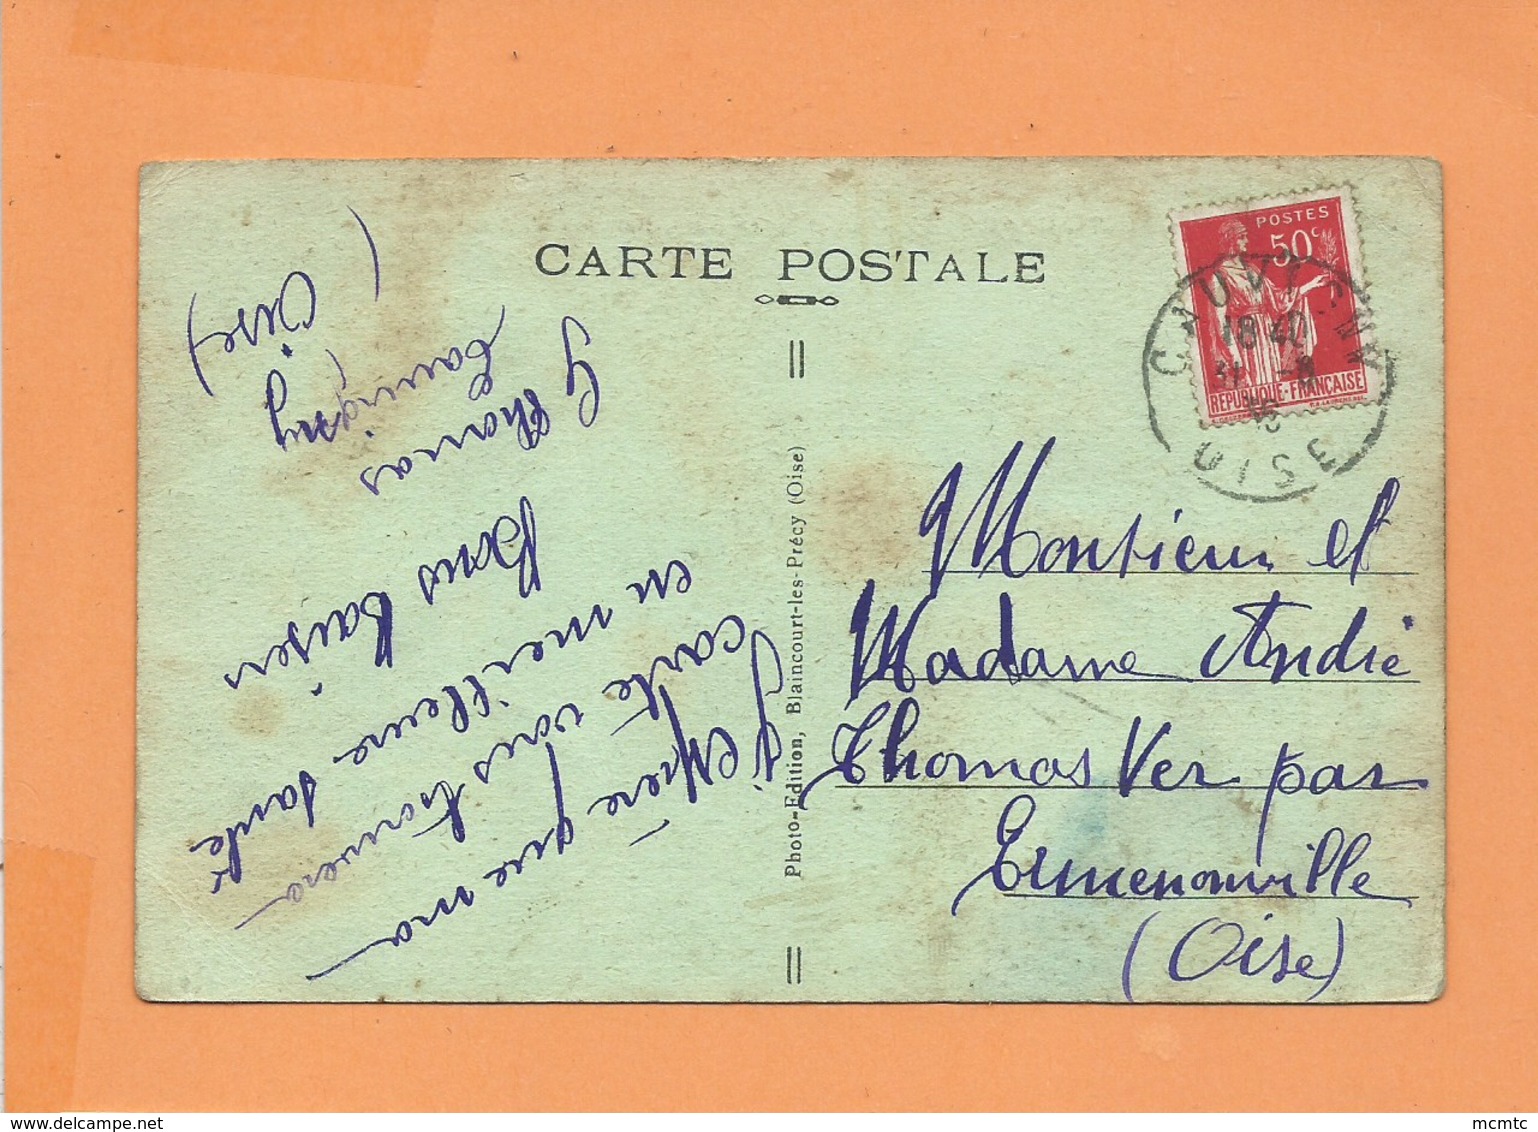 CARTE POSTALE
POSTES
50c
REPUBLIQUE-FRANCAISE
CAUVIGNY
18 40
31 -8
OISE
J'espère que ma
carte vous trouvera
en meilleure santé
Bons baisers
G Thomas
Cauvigny
(Oise)
Photo-Edition, Blaincourt-les-Précy (Oise)
Monsieur et
Madame André
Thomas Ver par
Ermenonville
(Oise)
delcampe.net
mcmtc